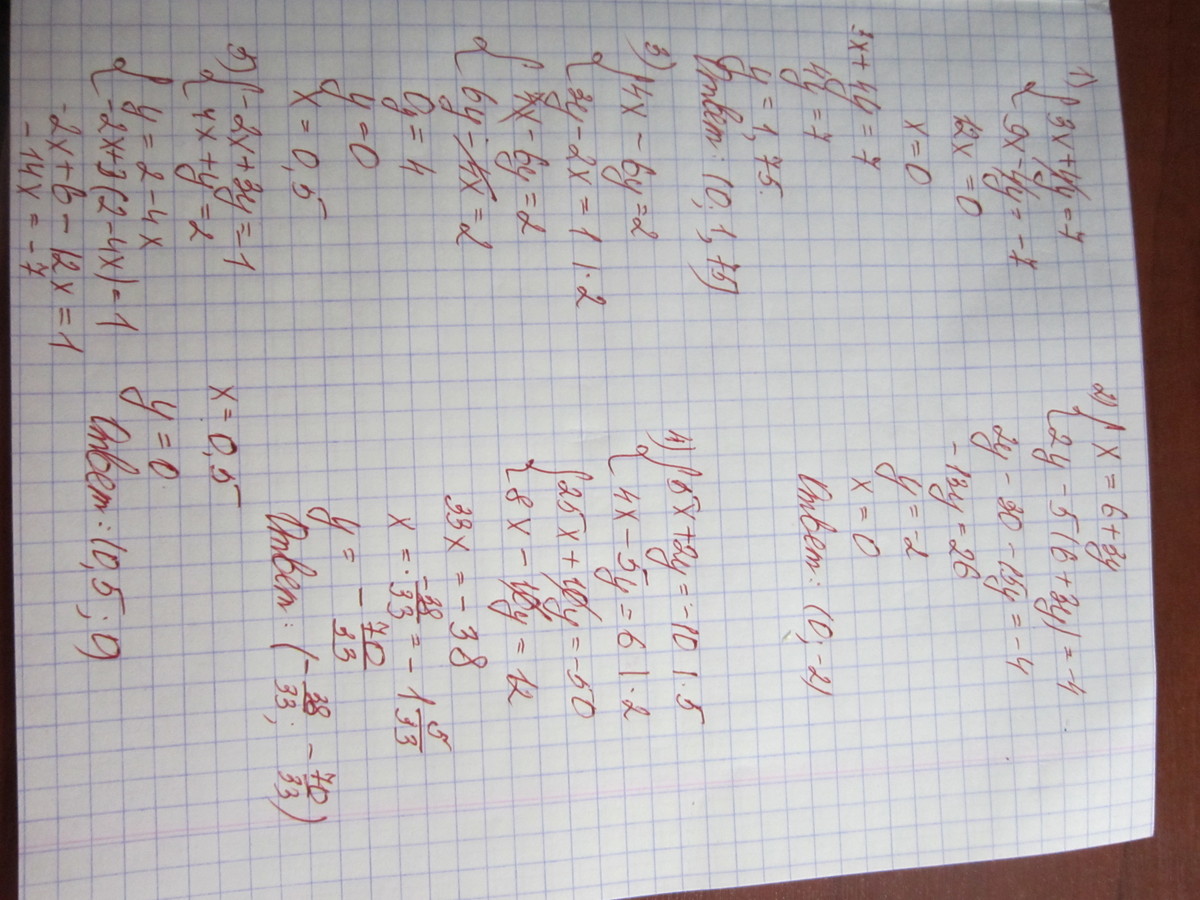 1) { 3x + 4y = 7
9x - 4y = -7
12x = 0
x = 0
3x + 4y = 7
4y = 7
y = 1,75.
Ответ: (0; 1,75)
3) { 4x - 6y = 2
3y - 2x = 1 | · 2
{ 4x - 6y = 2
6y - 4x = 2
0y = 4
y = 0
x = 0,5
5) { -2x + 3y = -1
4x + y = 2
{ y = 2 - 4x
-2x + 3(2 - 4x) = 1
-2x + 6 - 12x = 1
-14x = -7
x = 0,5
y = 0
Ответ: (0,5; 0)
2) { x = 6 + 3y
2y - 5(6 + 3y) = -4
2y - 30 - 15y = -4
-13y = 26
y = -2
x = 0
Ответ: (0; -2)
4) { 5x + 2y = -10 | · 5
4x - 5y = 6 | · 2
{ 25x + 10y = -50
8x - 10y = 12
33x = -38
x = -38/33 = -1 5/33
y = - 70/33
Ответ: (- 38/33; - 70/33)